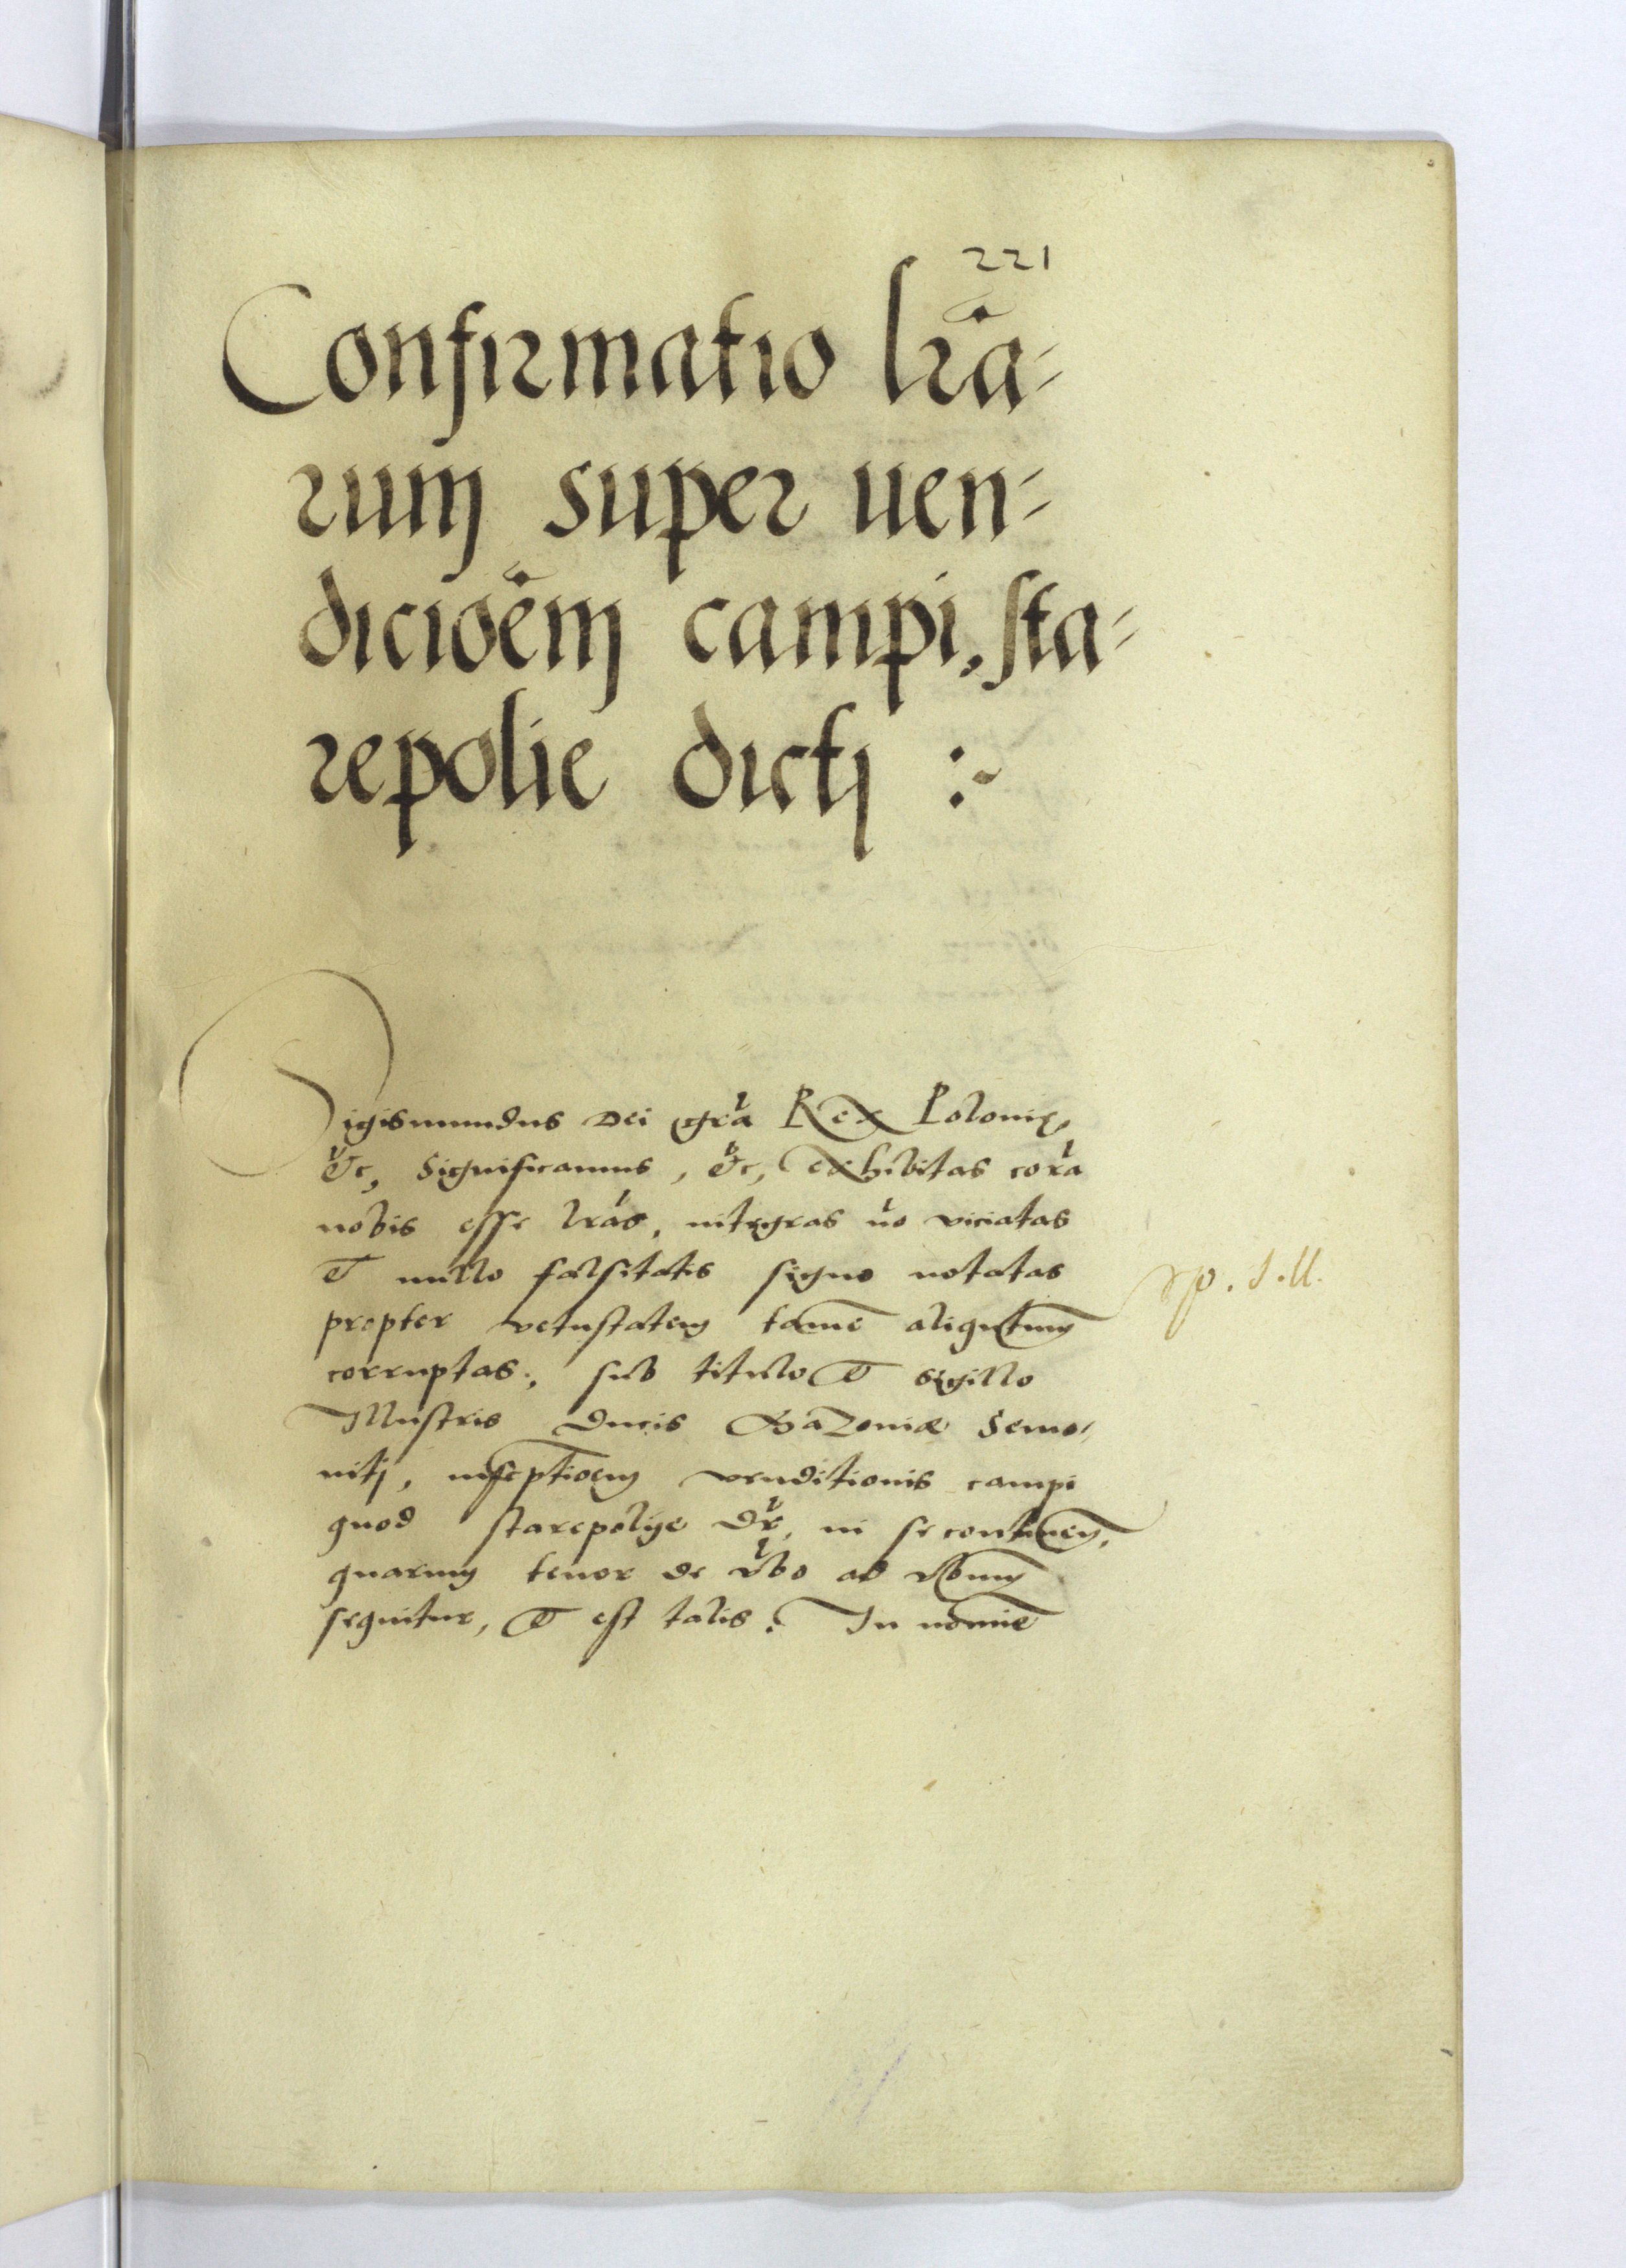 221
Confirmatio lr̃a-
rum super uen-
dicioẽm campi, sta-
repolie dictj :~
Sigismundus Dei gr̃a Rex Poloniæ,
&c, Significamus, &c, exhibitas corã
nobis esse lr̃as, integras nõ viciatas
et nullo falsitatis signo notatas
propter vetustatem tamẽ aliqñtum
corruptas, sub titulo et sigillo
Illustris Ducis Mazoniæ Semo-
vitj, inscptioem venditionis campi
quod starepolye dr̃, in se continen,
quarum tenor de v̾bo ad v̾bum
sequitur, et est talis. In nomiẽ